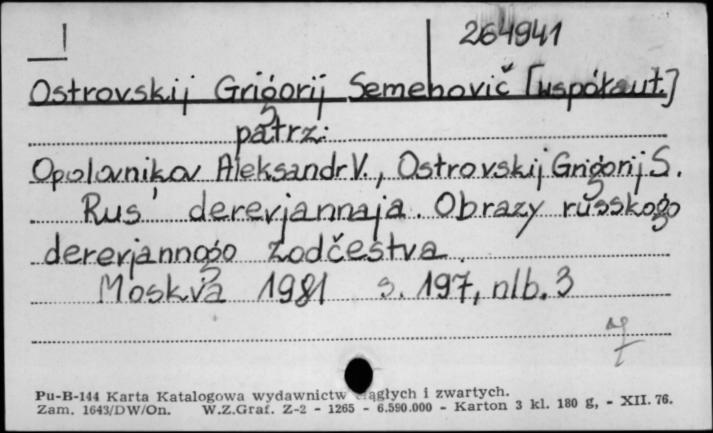 264941
Ostrovskij Grigorij Semenovič [współaut.]
patrz:
Opolovnikov Aleksandr V., Ostrovskij Grigorij S.
Rus' derevjannaja. Obrazy russkogo
derevjannogo zodčestva.
Moskva 1981 s. 197, nlb. 3
Pu-B-144 Karta Katalogowa wydawnictw ciągłych i zwartych.
Zam. 1643/DW/On. W.Z.Graf. Z-2 - 1265 - 6.590.000 - Karton 3 kl. 180 g, - XII. 76.